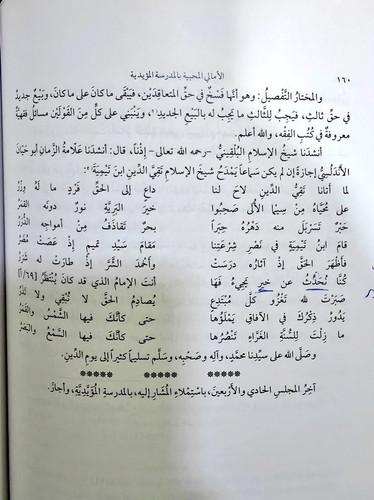 ١٦٠
الأمالي المحبية بالمدرسة المؤيدية
والمختارُ التَّفْصيلُ: وهو أنَّها فَسْخٌ في حقِّ المتعاقِدَيْن، فيَبْقَى ما كانَ على ما كانَ، وبَيْعٌ جديدٌ
في حقِّ ثالثٍ، فيَجِبُ للثَّالثِ ما يجبُ له بالبَيْعِ الجديدِ، ويَنْبَني على كلٍّ مِنَ القَوْلَيْنِ مسائلُ فقهيَّةٌ
معروفةٌ في كُتُبِ الفِقْه، والله أعلم.
أنشدَنا شيخُ الإسلامِ البُلْقِينيُّ -رحمه الله تعالى- إذْنًا، قال: أنشدَنا علَّامةُ الزَّمانِ أبو حيَّانَ
الأندلُسيُّ إجازةً إن لم يكن سَماعًا يَمْدَحُ شيخَ الإسلامِ تَقِيَّ الدِّينِ ابنَ تَيْمِيَةَ:
لما أتانا تَقِيُّ الدِّينِ لاحَ لنا داعٍ إلى الحَقِّ فَرْدٍ ما لَهُ وَزَرُ
على مُحَيَّاهُ مِنْ سِيما الأُلَى صَحِبُوا خيرَ البَرِيَّةِ نورٌ دونَه القَمَرُ
حَبْرٌ تَسَرْبَلَ منه دَهْرُهُ حِبَرًا بحرٌ تَقاذَفُ مِنْ أمواجِهِ الدُّرَرُ
قامَ ابنُ تَيْمِيَةٍ في نَصْرِ شِرْعَتِنا مَقامَ سَيِّدِ تَميمٍ إذْ عَصَتْ مُضَرُ
فأَظْهَرَ الحَقَّ إذْ آثارُه دَرَسَتْ وأَخْمَدَ الشَّرَّ إذْ طارَتْ له شَرَرُ
كُنَّا نُحَدَّثُ عن خيرٍ يَجيءُ فَها أنتَ الإمامُ الذي قد كانَ يُنْتَظَرُ [٨٩/أ]
صَبَرْتَ لله تَغْزُو كلَّ مُبْتَدِعٍ يُصادِمُ الحَقَّ لا يُبْقِي ولا يَذَرُ
يَدُورُ ذِكْرُكَ في الآفاقِ يَمْلَؤُها حتى كأنَّكَ فيها الشَّمْسُ والقَمَرُ
ما زِلْتَ للسُّنَّةِ الغَرَّاءِ تَنْصُرُها حتى كأنَّكَ فيها السَّمْعُ والبَصَرُ
وصَلَّى الله على سيِّدِنا محمَّدٍ، وآلِه وصَحْبِه، وسَلَّم تسليمًا كثيرًا إلى يومِ الدِّينِ.
***** ***** *****
آخِرُ المجلسِ الحادي والأَرْبَعينَ، باسْتِمْلاءِ المُشارِ إليه، بالمدرسةِ المُؤَيَّدِيَّةِ، وأجازَ.